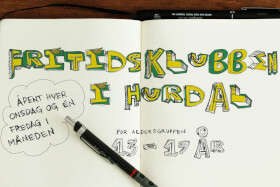 FRITIDSKLUBBEN
I HURDAL
ÅPENT HVER
ONSDAG OG ÉN
FREDAG I
MÅNEDEN
FOR ALDERSGRUPPEN
13 - 17 ÅR